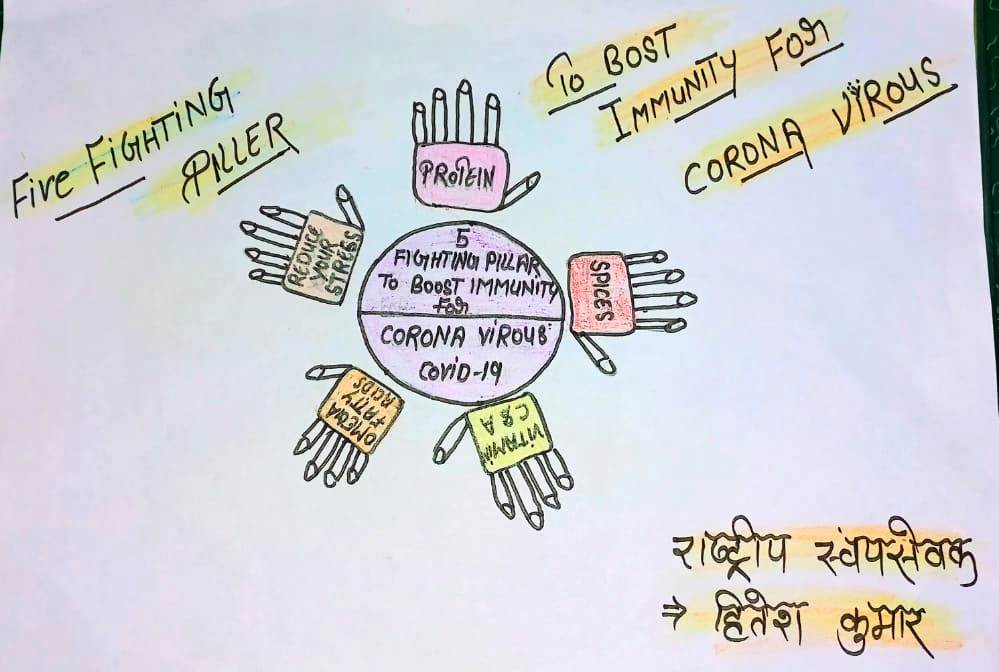 FIVE FIGHTING
PILLER
TO BOST
IMMUNITY FOR
CORONA VIROUS
PROTEIN
REDUCE
YOUR
STRESS
5
FIGHTING PILLAR
TO BOOST IMMUNITY
FOR
CORONA VIROUS
COVID-19
SPICES
OMEGA
FATTY
ACIDS
VITAMIN
C & A
राष्ट्रीप स्वंपसेवक
⇒ हितेश कुमार